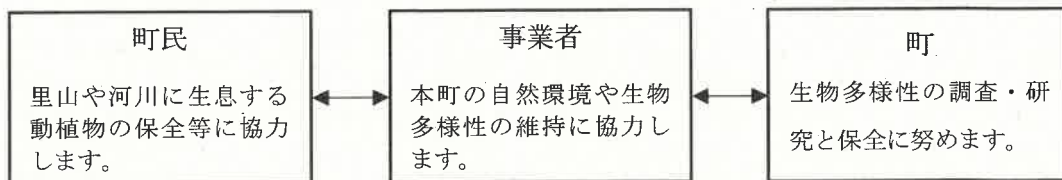 町民
里山や河川に生息する
動植物の保全等に協力
します。
事業者
本町の自然環境や生物
多様性の維持に協力し
ます。
町
生物多様性の調査・研
究と保全に努めます。